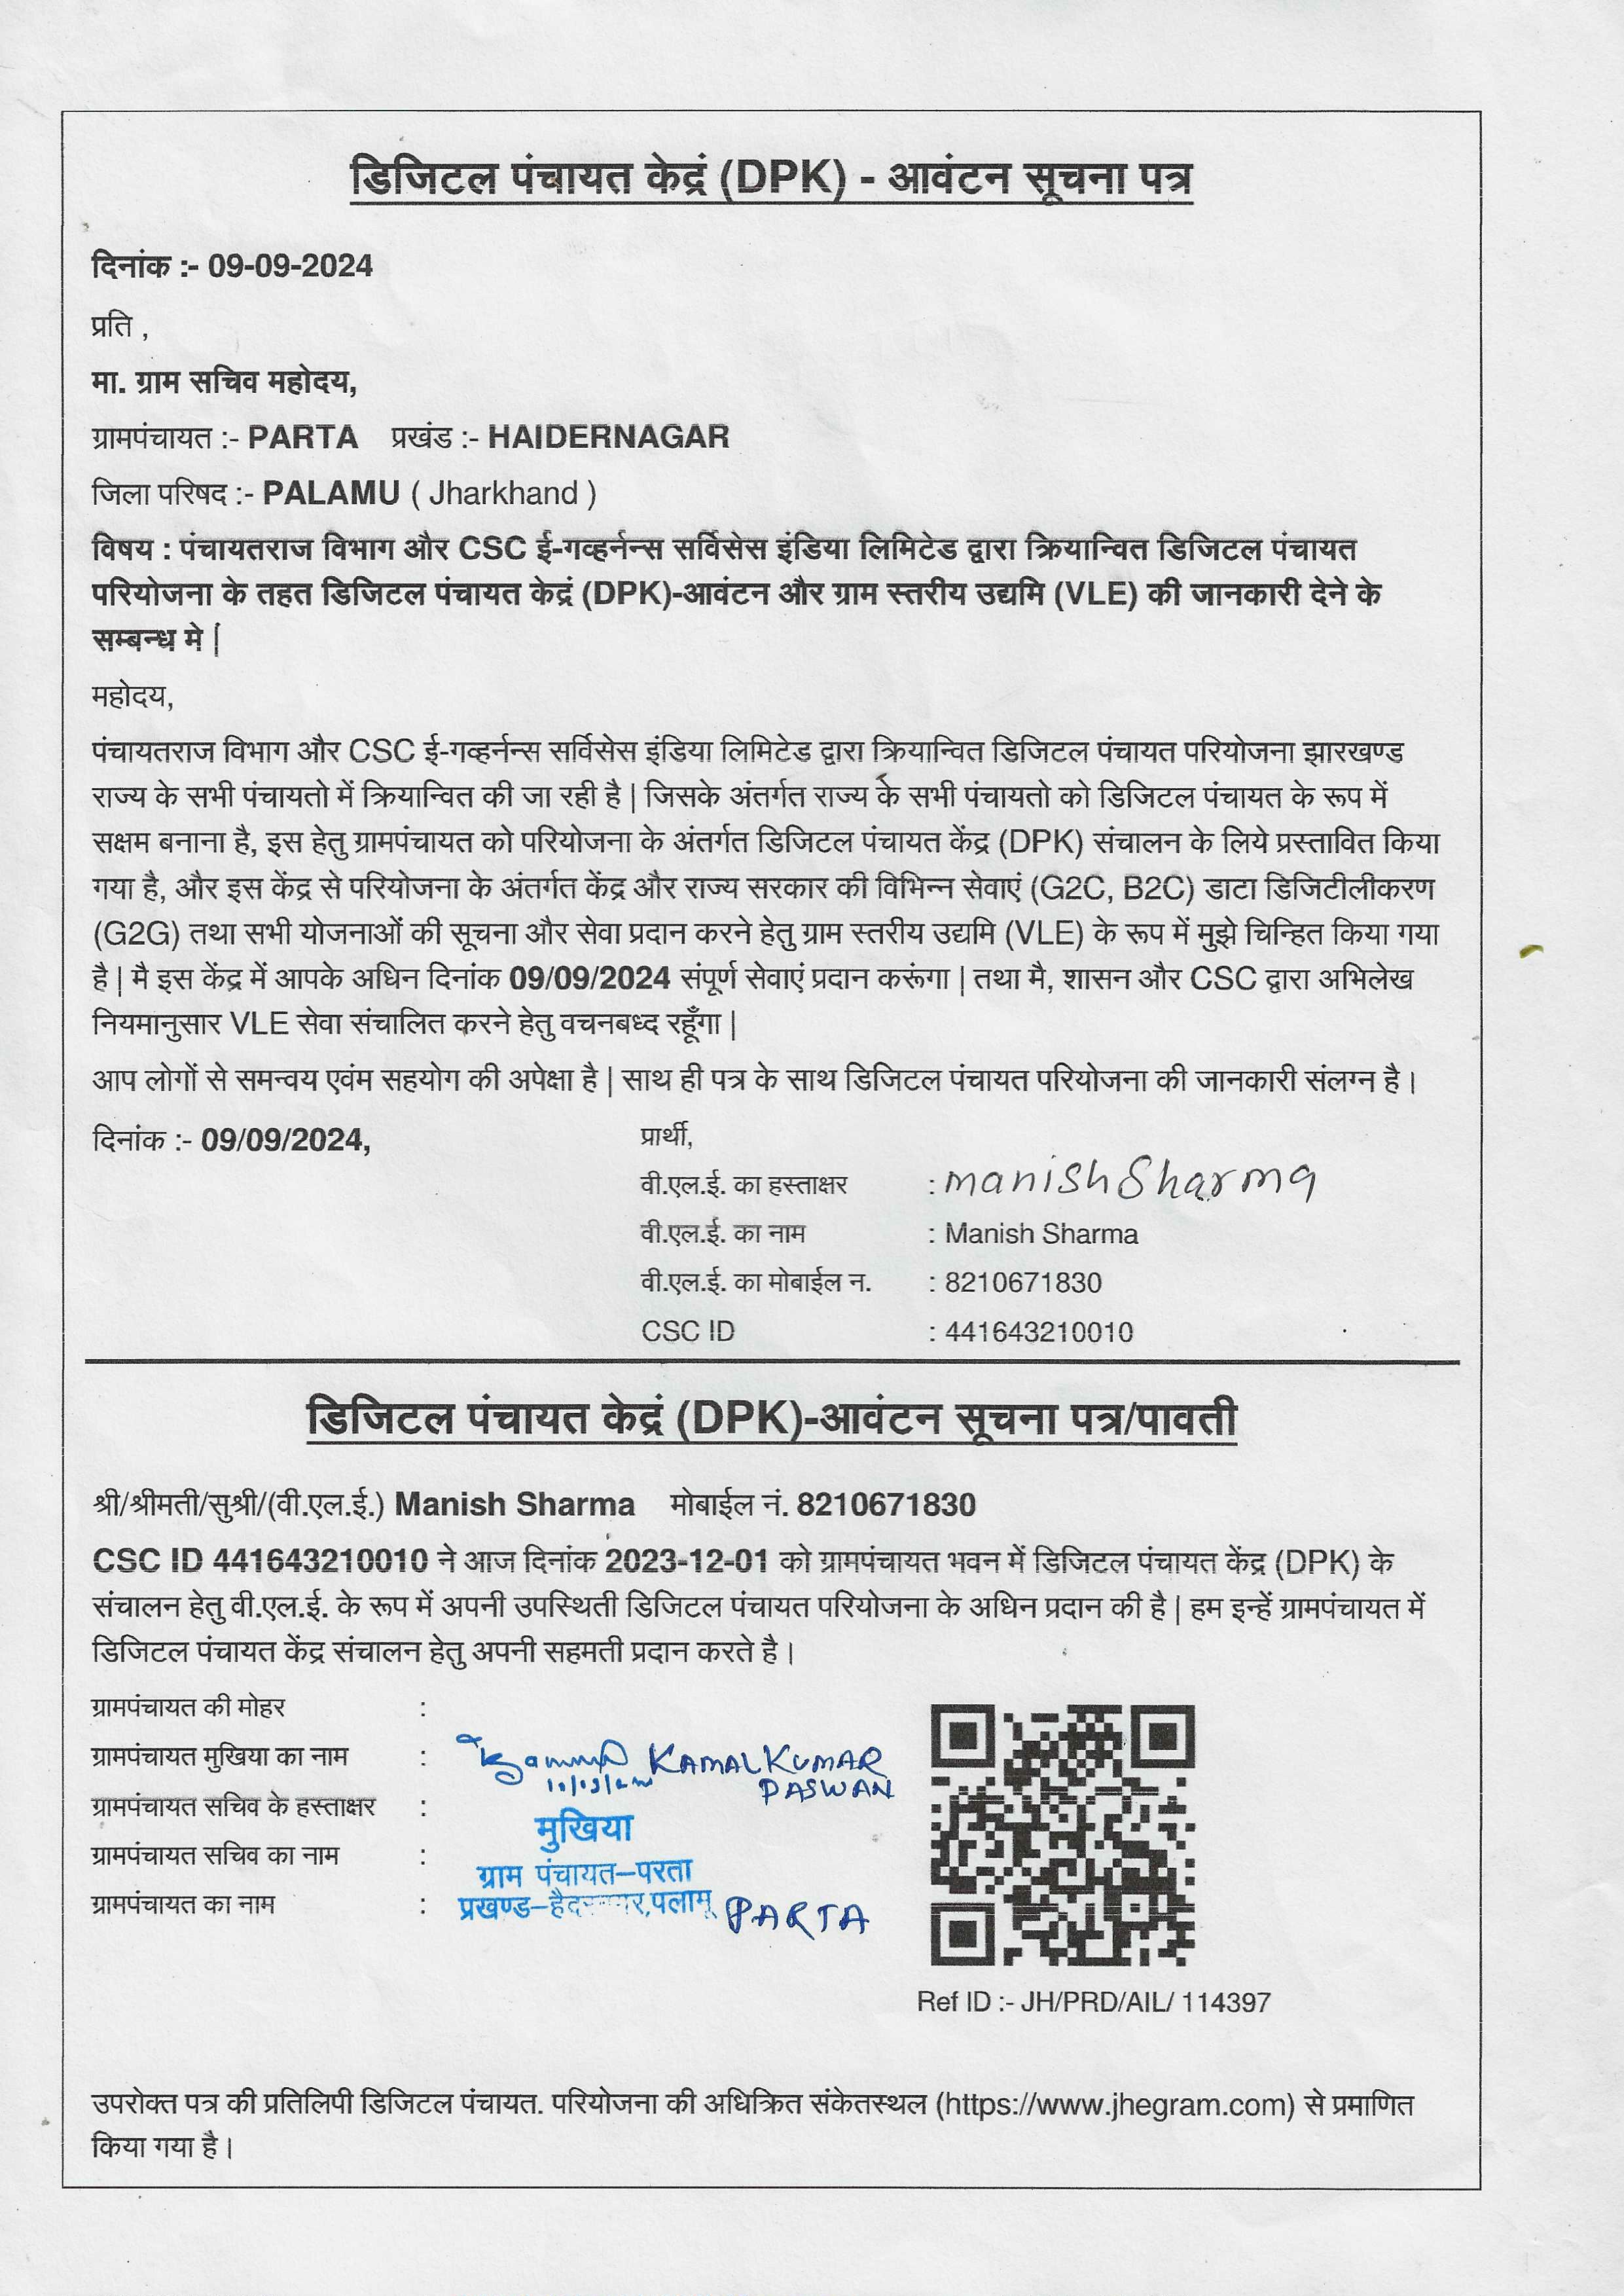 डिजिटल पंचायत केद्रं (DPK) - आवंटन सूचना पत्र
दिनांक :- 09-09-2024
प्रति ,
मा. ग्राम सचिव महोदय,
ग्रामपंचायत :- PARTA प्रखंड :- HAIDERNAGAR
जिला परिषद :- PALAMU ( Jharkhand )
विषय : पंचायतराज विभाग और CSC ई-गव्हर्नन्स सर्विसेस इंडिया लिमिटेड द्वारा क्रियान्वित डिजिटल पंचायत
परियोजना के तहत डिजिटल पंचायत केद्रं (DPK)-आवंटन और ग्राम स्तरीय उद्यमि (VLE) की जानकारी देने के
सम्बन्ध मे |
महोदय,
पंचायतराज विभाग और CSC ई-गव्हर्नन्स सर्विसेस इंडिया लिमिटेड द्वारा क्रियान्वित डिजिटल पंचायत परियोजना झारखण्ड
राज्य के सभी पंचायतो में क्रियान्वित की जा रही है | जिसके अंतर्गत राज्य के सभी पंचायतो को डिजिटल पंचायत के रूप में
सक्षम बनाना है, इस हेतु ग्रामपंचायत को परियोजना के अंतर्गत डिजिटल पंचायत केंद्र (DPK) संचालन के लिये प्रस्तावित किया
गया है, और इस केंद्र से परियोजना के अंतर्गत केंद्र और राज्य सरकार की विभिन्न सेवाएं (G2C, B2C) डाटा डिजिटीलीकरण
(G2G) तथा सभी योजनाओं की सूचना और सेवा प्रदान करने हेतु ग्राम स्तरीय उद्यमि (VLE) के रूप में मुझे चिन्हित किया गया
है | मै इस केंद्र में आपके अधिन दिनांक 09/09/2024 संपूर्ण सेवाएं प्रदान करूंगा | तथा मै, शासन और CSC द्वारा अभिलेख
नियमानुसार VLE सेवा संचालित करने हेतु वचनबध्द रहूँगा |
आप लोगों से समन्वय एवंम सहयोग की अपेक्षा है | साथ ही पत्र के साथ डिजिटल पंचायत परियोजना की जानकारी संलग्न है।
दिनांक :- 09/09/2024,
प्रार्थी,
वी.एल.ई. का हस्ताक्षर : manish Sharma
वी.एल.ई. का नाम : Manish Sharma
वी.एल.ई. का मोबाईल न. : 8210671830
CSC ID : 441643210010
डिजिटल पंचायत केद्रं (DPK)-आवंटन सूचना पत्र/पावती
श्री/श्रीमती/सुश्री/(वी.एल.ई.) Manish Sharma मोबाईल नं. 8210671830
CSC ID 441643210010 ने आज दिनांक 2023-12-01 को ग्रामपंचायत भवन में डिजिटल पंचायत केंद्र (DPK) के
संचालन हेतु वी.एल.ई. के रूप में अपनी उपस्थिती डिजिटल पंचायत परियोजना के अधिन प्रदान की है | हम इन्हें ग्रामपंचायत में
डिजिटल पंचायत केंद्र संचालन हेतु अपनी सहमती प्रदान करते है।
ग्रामपंचायत की मोहर :
ग्रामपंचायत मुखिया का नाम : KAMAL KUMAR
PASWAN
ग्रामपंचायत सचिव के हस्ताक्षर :
मुखिया
ग्रामपंचायत सचिव का नाम :
ग्राम पंचायत–परता
ग्रामपंचायत का नाम :
प्रखण्ड–हैदरनगर,पलामू PARTA
Ref ID :- JH/PRD/AIL/ 114397
उपरोक्त पत्र की प्रतिलिपी डिजिटल पंचायत. परियोजना की अधिक्रित संकेतस्थल (https://www.jhegram.com) से प्रमाणित
किया गया है।